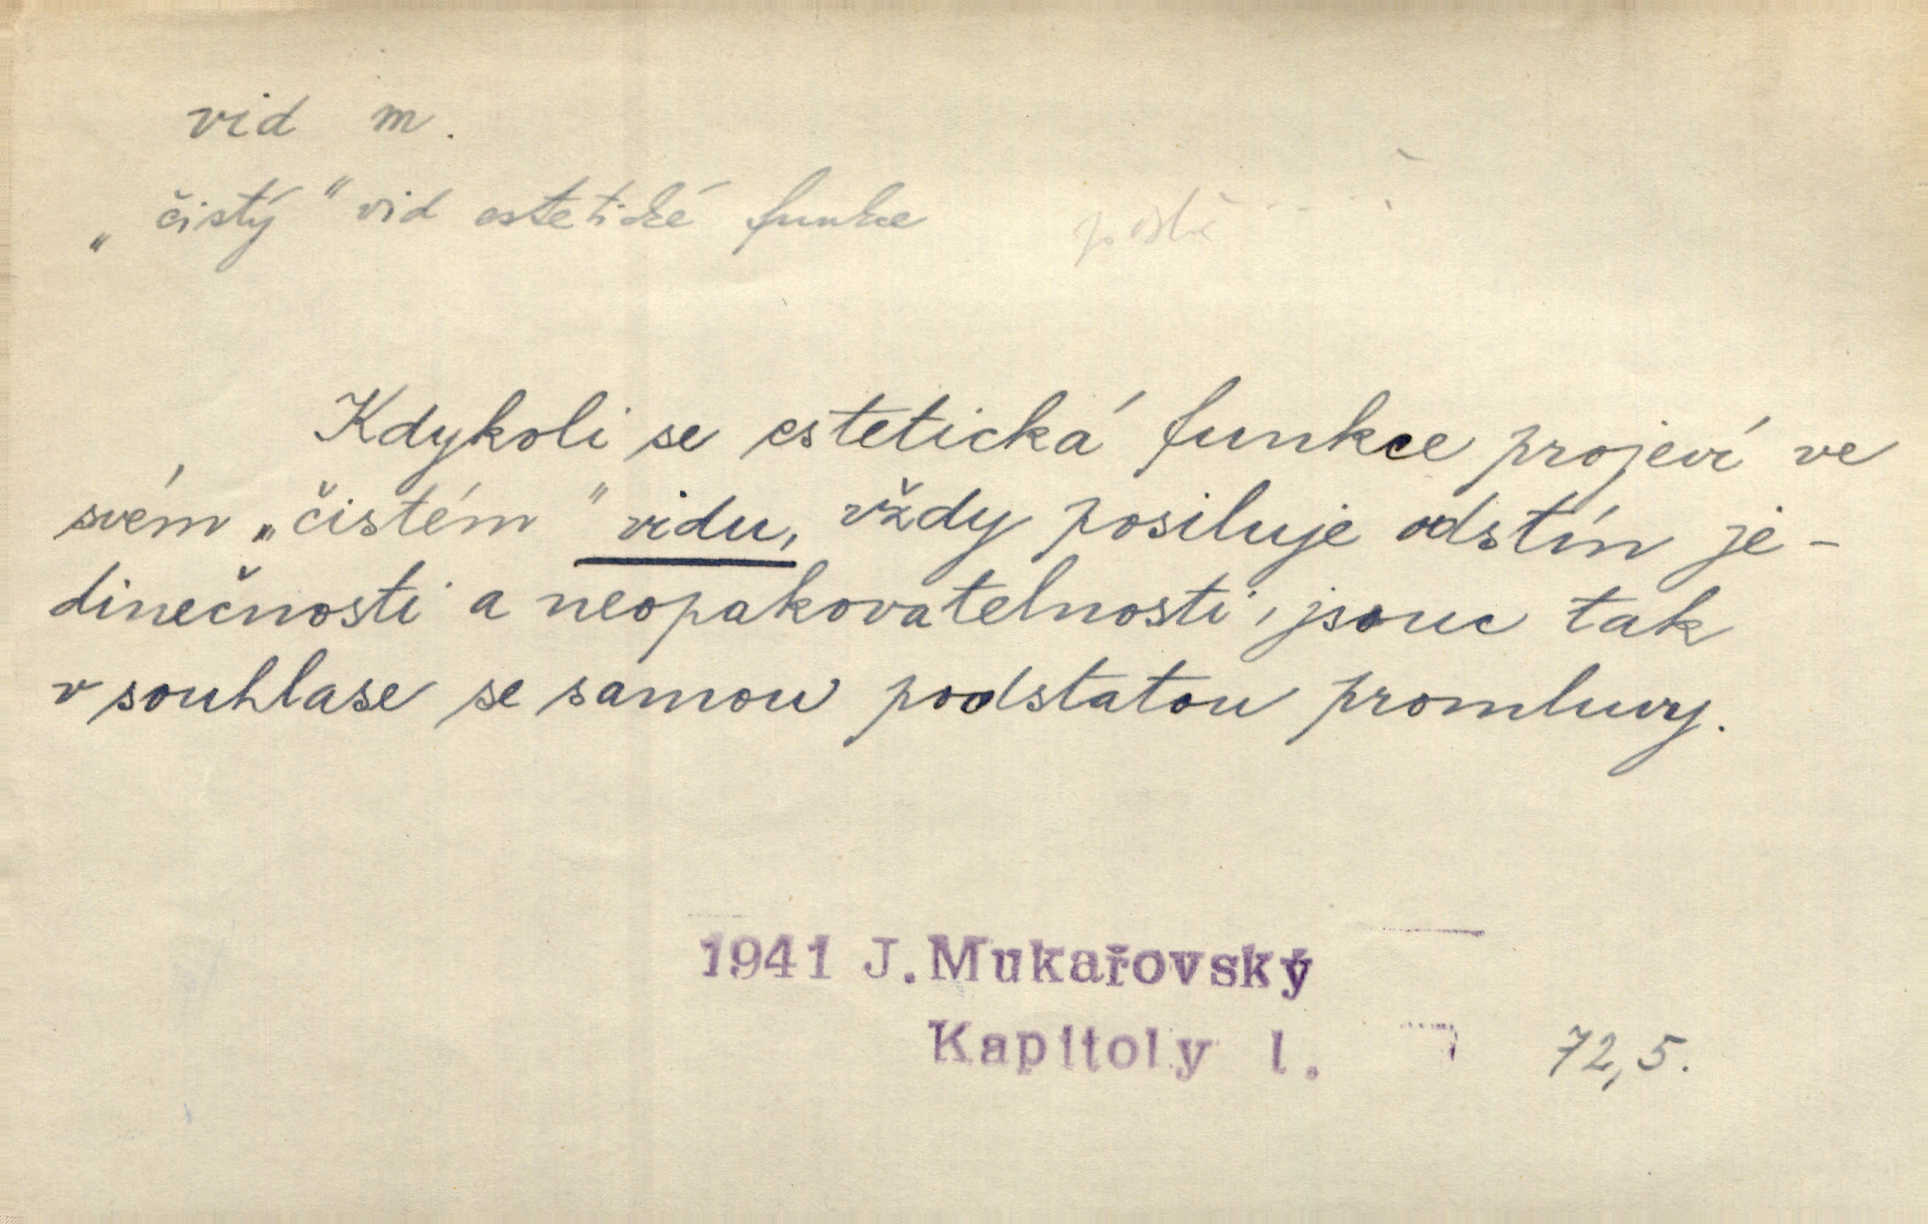 vid m.
„čistý“ vid estetické funkce
Kdykoli se estetická funkce projeví ve
svém „čistém“ vidu, vždy posiluje odstín je-
dinečnosti a neopakovatelnosti, jsouc tak
v souhlase se samou podstatou promluvy.
1941 J. Mukařovský
Kapitoly I. 72,5.